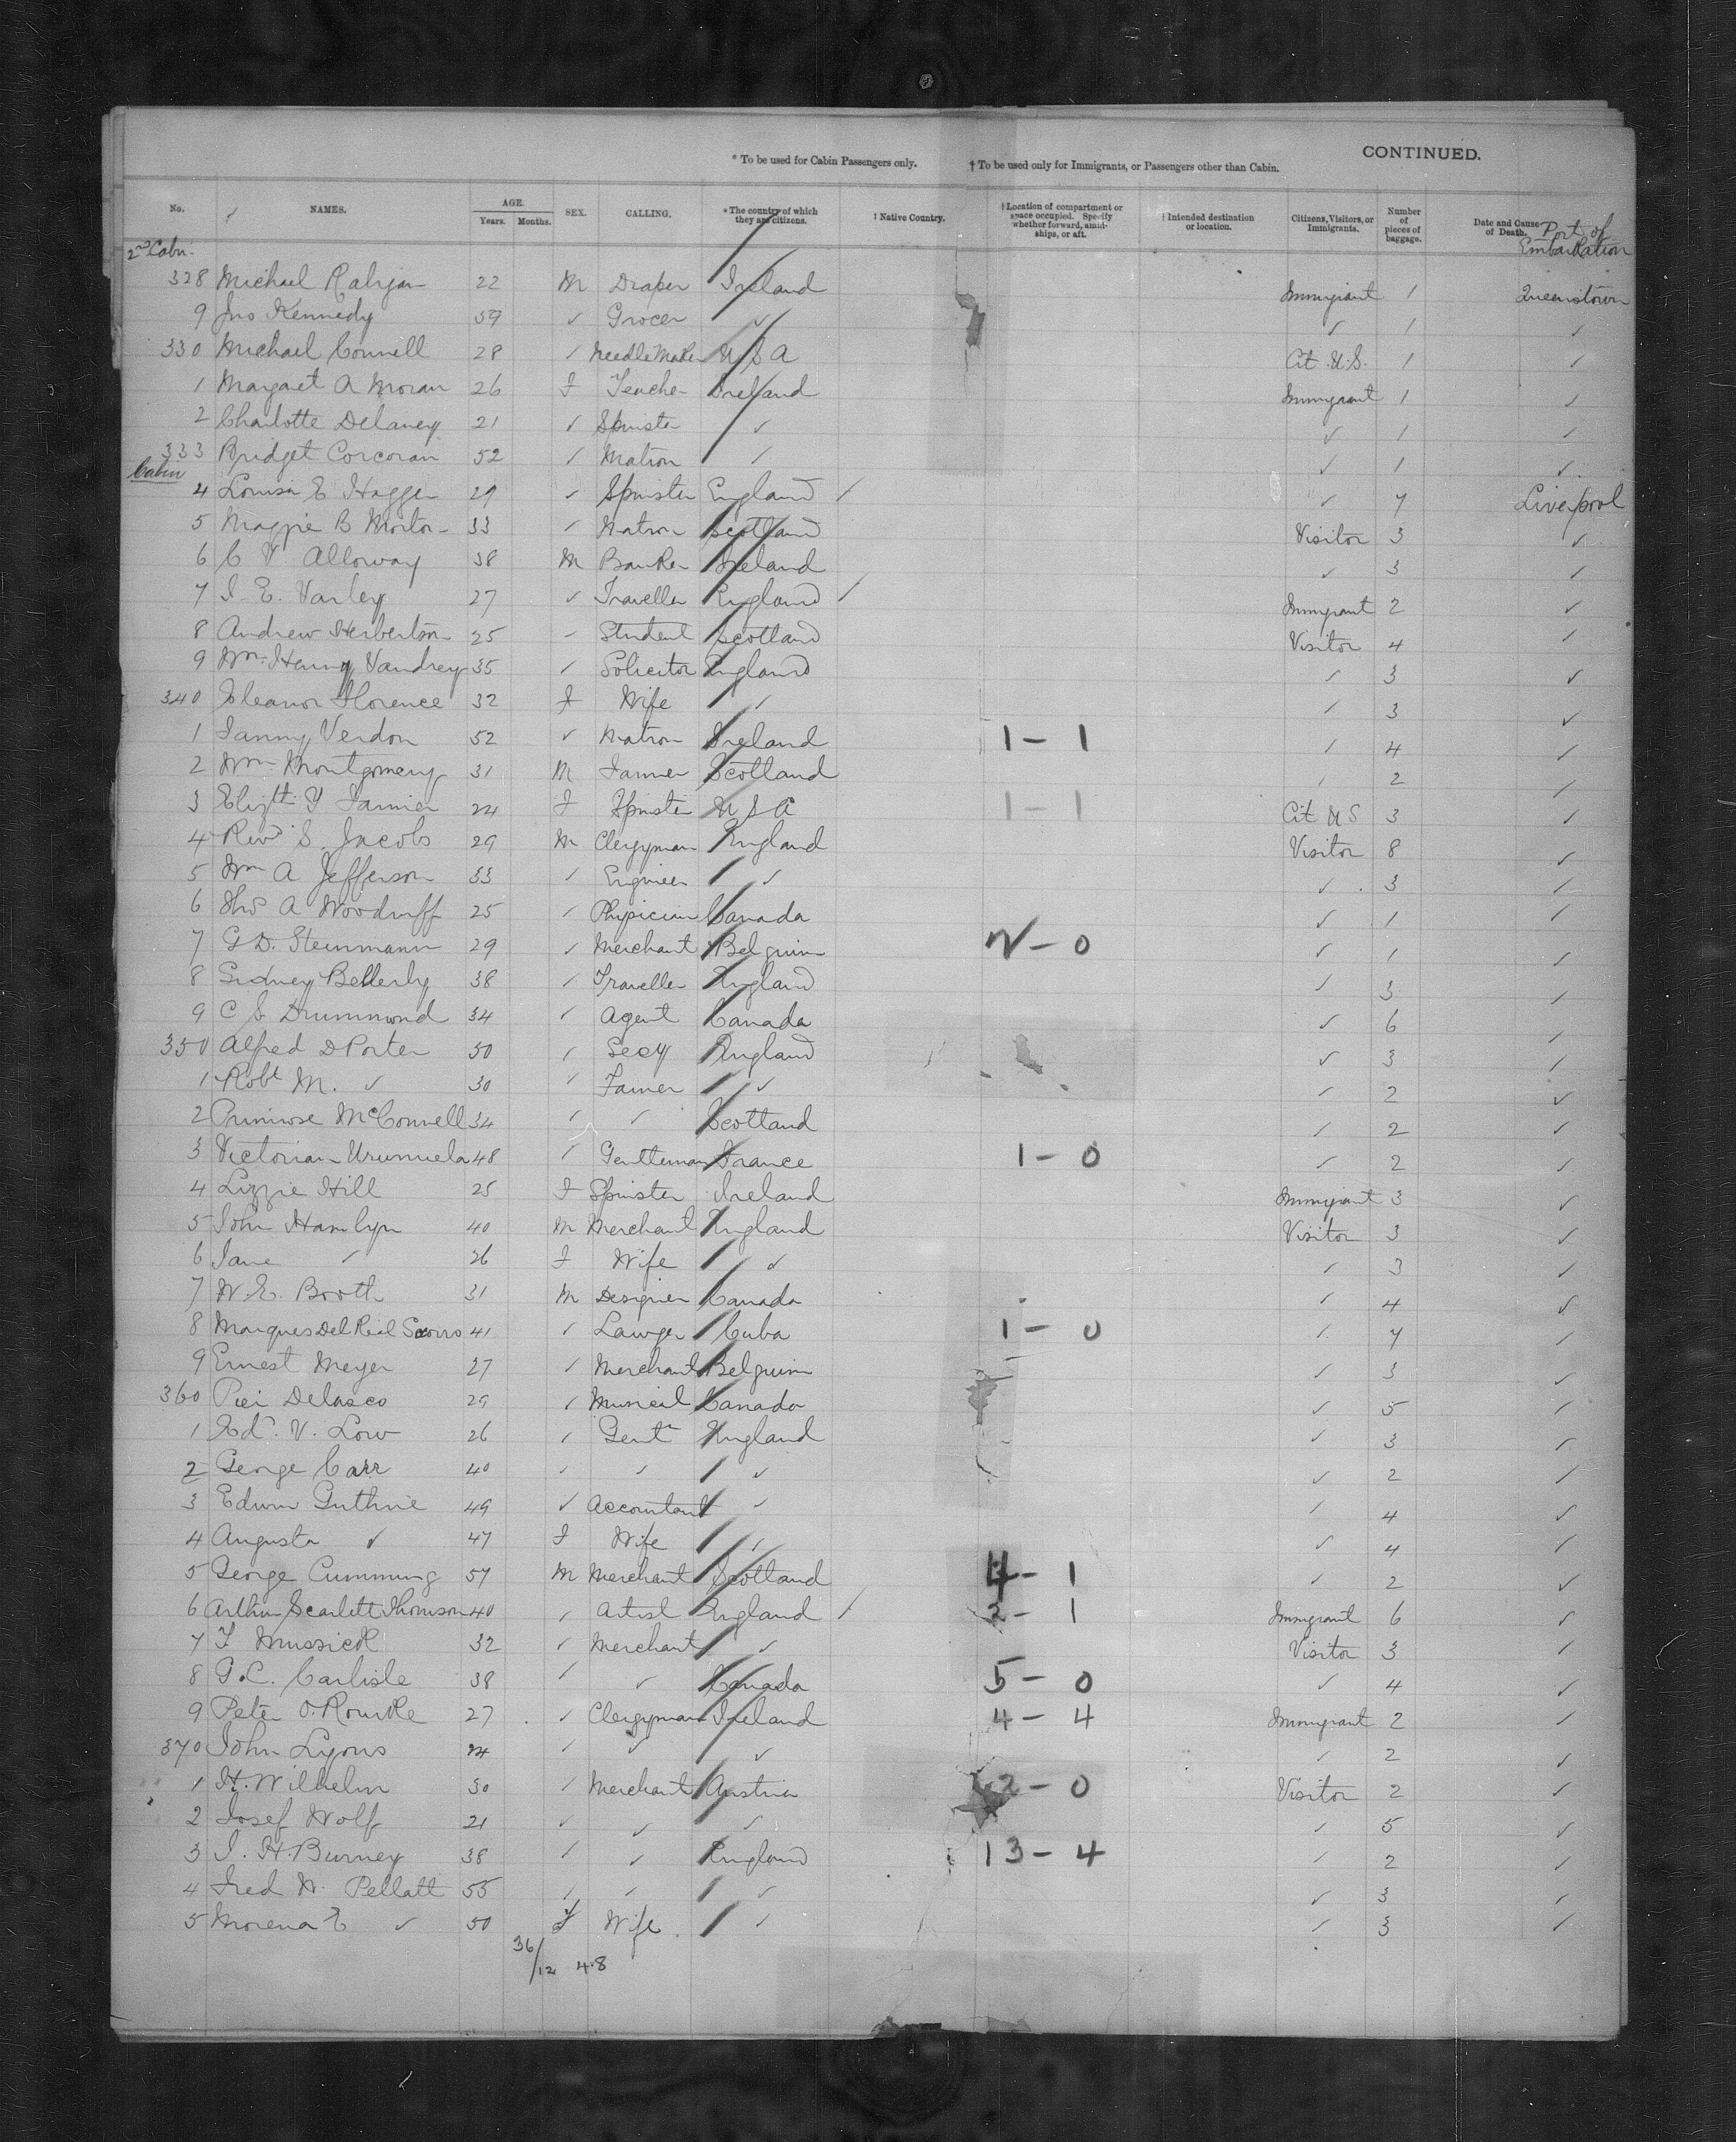 CONTINUED.
* To be used for Cabin Passengers only. † To be used only for Immigrants, or Passengers other than Cabin.
No. NAMES. AGE. Years. Months. SEX. CALLING. * The country of which they are citizens. † Native Country. † Location of compartment or space occupied. Specify whether forward, amidships, or aft. † Intended destination or location. Citizens, Visitors, or Immigrants. Number of pieces of baggage. Date and Cause of Death. Port of Embarkation
2nd Cabn.
328 Michael 22 M Draper Ireland Immigrant 1 Queenstown
9 Jno Kennedy 59 ✓ Grocer ✓ ✓ 1 ✓
330 Michael Connell 28 ✓ Needle Maker U S A Cit. U.S. 1 ✓
1 Margaret A Moran 26 F Teacher Ireland Immigrant 1 ✓
2 Charlotte Delaney 21 ✓ Spinster ✓ ✓ 1 ✓
333 Bridget Corcoran 52 ✓ Matron ✓ ✓ 1 ✓
Cabin
4 Louisa E Hagger 29 ✓ Spinster England ✓ ✓ 7 Liverpool
5 Maggie B Morton 33 ✓ Matron Scotland Visitor 3 ✓
6 C V Alloway 38 M Banker Ireland ✓ 3 ✓
7 J. E. Varley 27 ✓ Traveller England ✓ Immigrant 2 ✓
8 Andrew Herbertson 25 ✓ Student Scotland Visitor 4 ✓
9 Wm. Henry Vandrey 35 ✓ Solicitor England ✓ 3 ✓
340 Eleanor Florence 32 F Wife ✓ ✓ 3 ✓
1 Fanny Verdon 52 ✓ Matron Ireland 1 - 1 ✓ 4 ✓
2 Wm Montgomery 31 M Farmer Scotland ✓ 2 ✓
3 Elizth 24 F Spinster U S A 1 - 1 Cit U S 3 ✓
4 Revd S. Jacobs 29 M Clergyman England Visitor 8 ✓
5 Wm A Jefferson 33 ✓ Engineer ✓ ✓ 3 ✓
6 Thos A Woodruff 25 ✓ Physician Canada ✓ 1 ✓
7 G D. Steinmann 29 ✓ Merchant Belguim - 0 ✓ 1 ✓
8 Sidney Betterly 38 ✓ Traveller England ✓ 3 ✓
9 C S Drummond 34 ✓ Agent Canada ✓ 6 ✓
350 Alfred D Porter 50 ✓ Secy England ✓ 3 ✓
1 Robt M. ✓ 30 ✓ Farmer ✓ ✓ 2 ✓
2 Primrose McConnell 34 ✓ ✓ Scotland ✓ 2 ✓
3 Victorian Urumuela 48 ✓ Gentleman France 1 - 0 ✓ 2 ✓
4 Lizzie Hill 25 F Spinster Ireland Immigrant 3 ✓
5 John Hamlyn 40 M Merchant England Visitor 3 ✓
6 Jane ✓ 26 F Wife ✓ ✓ 3 ✓
7 W. E. Booth 31 M Designer Canada ✓ 4 ✓
8 Marques Del Real Socorro 41 ✓ Lawyer Cuba 1 - 0 ✓ 7 ✓
9 Ernest Meyer 27 ✓ Merchant Belguim ✓ 3 ✓
360 Pier Delasco 29 ✓ Musical Canada ✓ 5 ✓
1 Ed. V. Low 26 ✓ Gent England ✓ 3 ✓
2 George Carr 40 ✓ ✓ ✓ ✓ 2 ✓
3 Edwin Guthrie 49 ✓ Accountant ✓ ✓ 4 ✓
4 Augusta ✓ 47 F Wife ✓ ✓ 4 ✓
5 George Cumming 57 M Merchant Scotland 4 - 1 ✓ 2 ✓
6 Arthur Scarlett Thomson 40 ✓ Artist England ✓ 2 - 1 Immigrant 6 ✓
7 F Mussick 32 ✓ Merchant ✓ Visitor 3 ✓
8 G. C. Carlisle 38 ✓ ✓ Canada 5 - 0 ✓ 4 ✓
9 Peter O. Rourke 27 ✓ Clergyman Ireland 4 - 4 Immigrant 2 ✓
370 John Lyons 24 ✓ ✓ ✓ ✓ 2 ✓
1 H. Wilhelm 30 ✓ Merchant Austria 2 - 0 Visitor 2 ✓
2 Josef Wolf 21 ✓ ✓ ✓ ✓ 5 ✓
3 J. H. Burney 38 ✓ ✓ England 13 - 4 ✓ 2 ✓
4 Fred W. Pellatt 55 ✓ ✓ ✓ ✓ 3 ✓
5 Morena E ✓ 50 F Wife ✓ ✓ 3 ✓
36/12 48